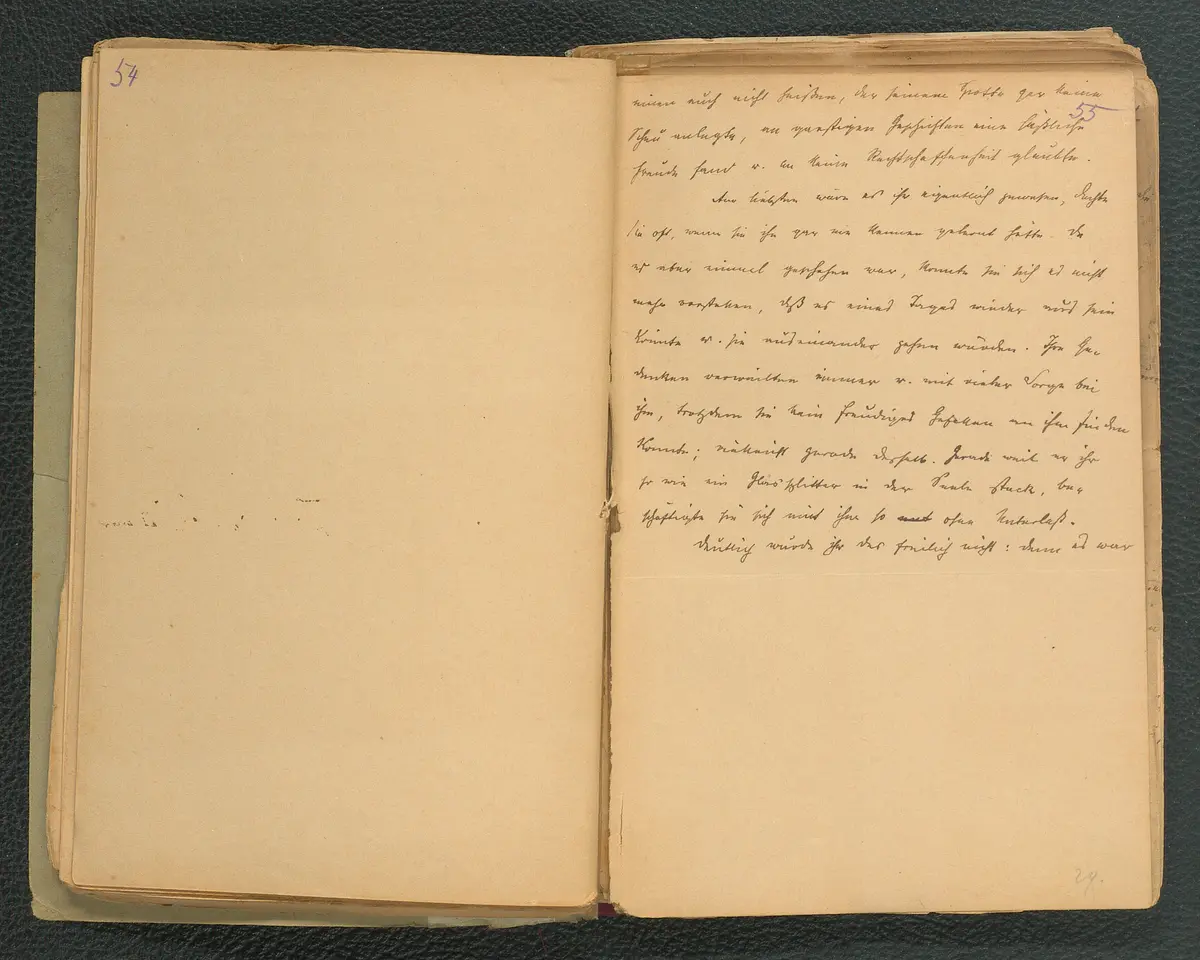 54
55
einen auch nicht heißen, der seinem Spotte gar keine
Scheu anlegte, an garstigen Geschichten eine häßliche
Freude fand u. an keine Rechtschaffenheit glaubte.
Am liebsten wäre es ihr eigentlich gewesen, dachte
sie oft, wenn sie ihn gar nie kennen gelernt hätte. Da
es aber einmal geschehen war, konnte sie sich es nicht
mehr vorstellen, daß es eines Tages wieder aus sein
könnte u. sie auseinander gehen würden. Ihre Ge-
danken verweilten immer u. mit vieler Sorge bei
ihm, trotzdem sie kein freudiges Gefallen an ihm finden
konnte; vielleicht gerade deshalb. Gerade weil er ihr
so wie ein Glassplitter in der Seele stack, be-
schäftigte sie sich mit ihm so ohne Unterlaß.
Deutlich wurde ihr das freilich nicht: denn es war
24.